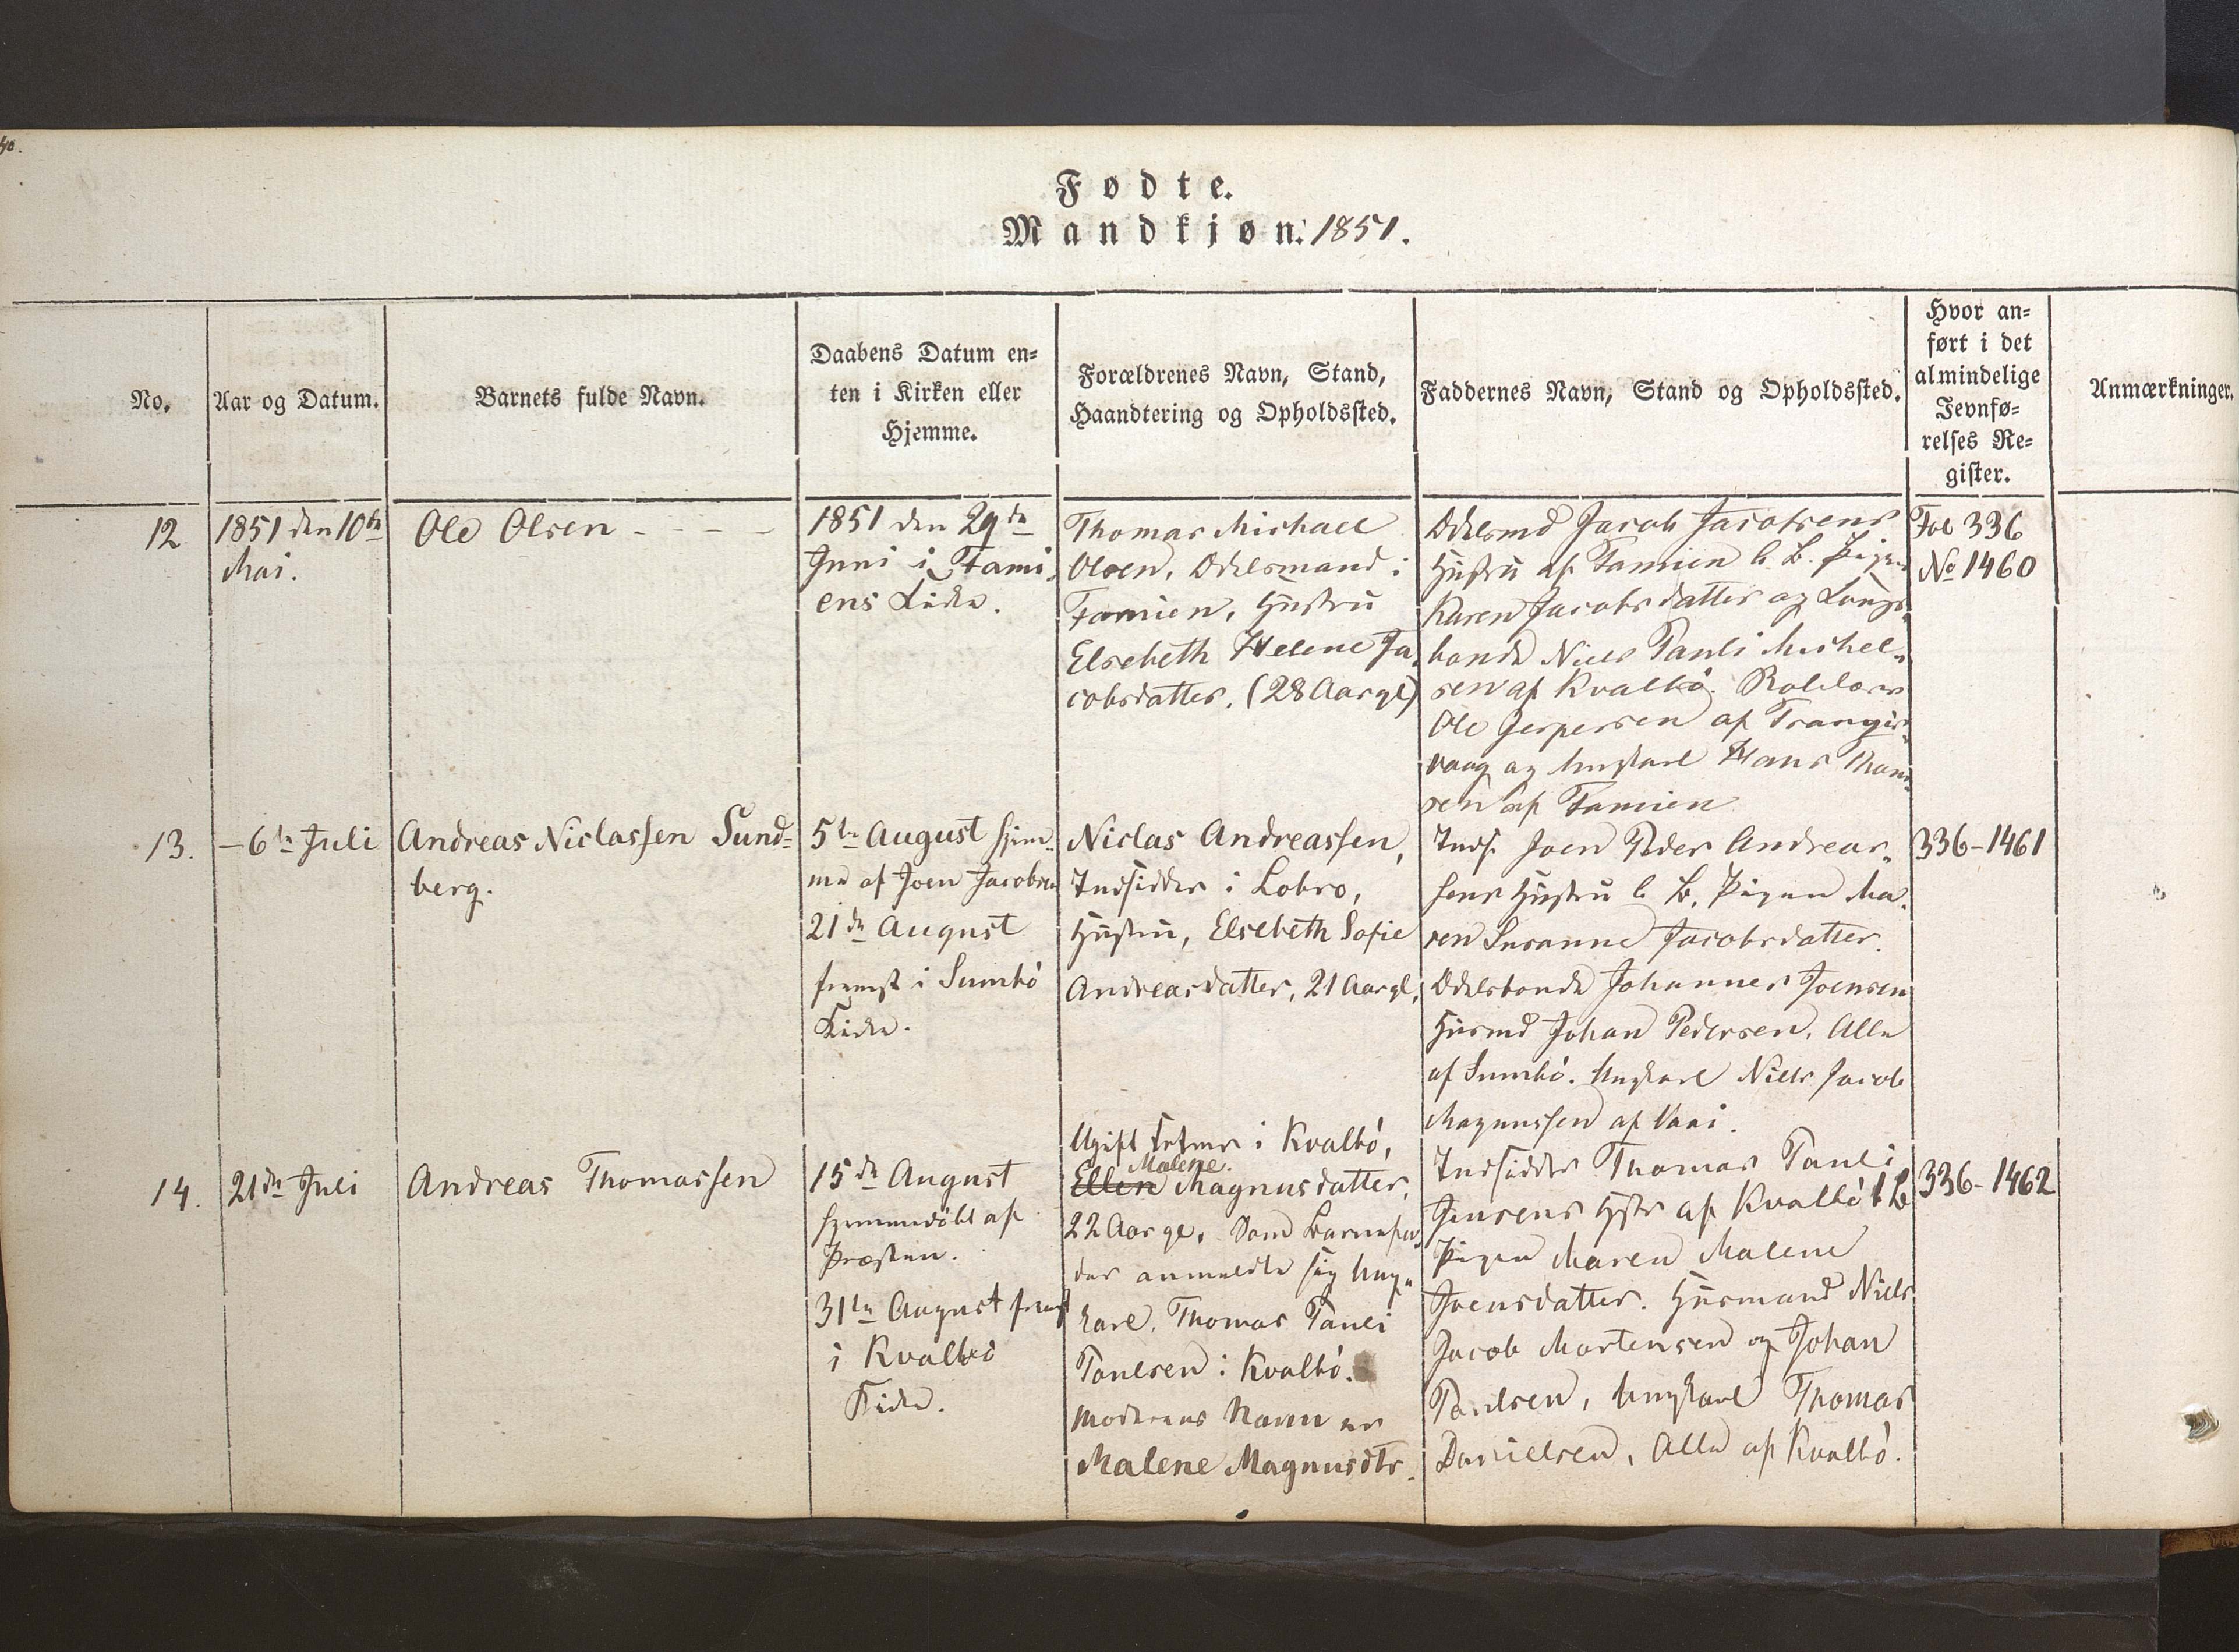 40.
Fødte.
Mandkjøn. 1851.
No.
Aar og Datum.
Barnets fulde Navn.
Daabens Datum en=
ten i Kirken eller
Hjemme.
Forældrenes Navn, Stand,
Haandtering og Opholdssted.
Faddernes Navn, Stand og Opholdssted.
Hvor an=
ført i det
almindelige
Jevnfø=
relses Re=
gister.
Anmærkninger.
12
1851 den 10de
Mai.
Ole Olsen - - - -
1851 den 29de
Juni i Fami
ens Kirke.
Thomas Michael
Olsen, Odelsmand i
Famien, Hustru
Elsebeth Helene Ja
cobsdatter. (28 Aar gl)
Odelsmd Jacob Jacobsens
Hustru af Famien b. B. Pigen
Karen Jacobsdatter og Kongs
bonde Niels Pauli Michel
sen af Kvalbö.
Ole Jespersen af Trangis
vaag og Ungkarl Hans Thom
sen af Famien
Fol 336
No 1460
13.
- 6te Juli
Andreas Niclassen Sund=
berg.
5te August hjem
me af Joen Jacobsen
21de August
fremst i Sumbö
Kirke.
Niclas Andreassen,
Indsidder i Lobro,
Hustru, Elsebeth Sofie
Andreasdatter, 21 Aar gl.
Inds. Joen Peder Andreas
sens Hustru b. B. Pigen Ma
ren Susanne Jacobsdatter.
Odelsbonde Johannes Joensen
Husmd Johan Pedersen, Alle
af Sumbö. Ungkarl Niels Jacob
Magnussen af Vaai.
336-1461
14.
21de Juli
Andreas Thomassen
15de August
hjemmedöbt af
Præsten.
31te August fremst
i Kvalbö
Kirke.
Ugift i Kvalbö,
Malene.
Ellen Magnusdatter,
22 Aar gl. Som Barnefa
der anmeldte sig Ung
karl, Thomas Pauli
Poulsen i Kvalbö.
Moderens Navn er
Malene Magnusdtr.
Indsidder Thomas Pauli
Jensens Hstr af Kvalbö b B
Pigen Maren Malene
Joensdatter. Husmand Niels
Jacob Mortensen og Johan
Poulsen, Ungkarl Thomas
Danielsen, Alle af Kvalbö.
336-1462